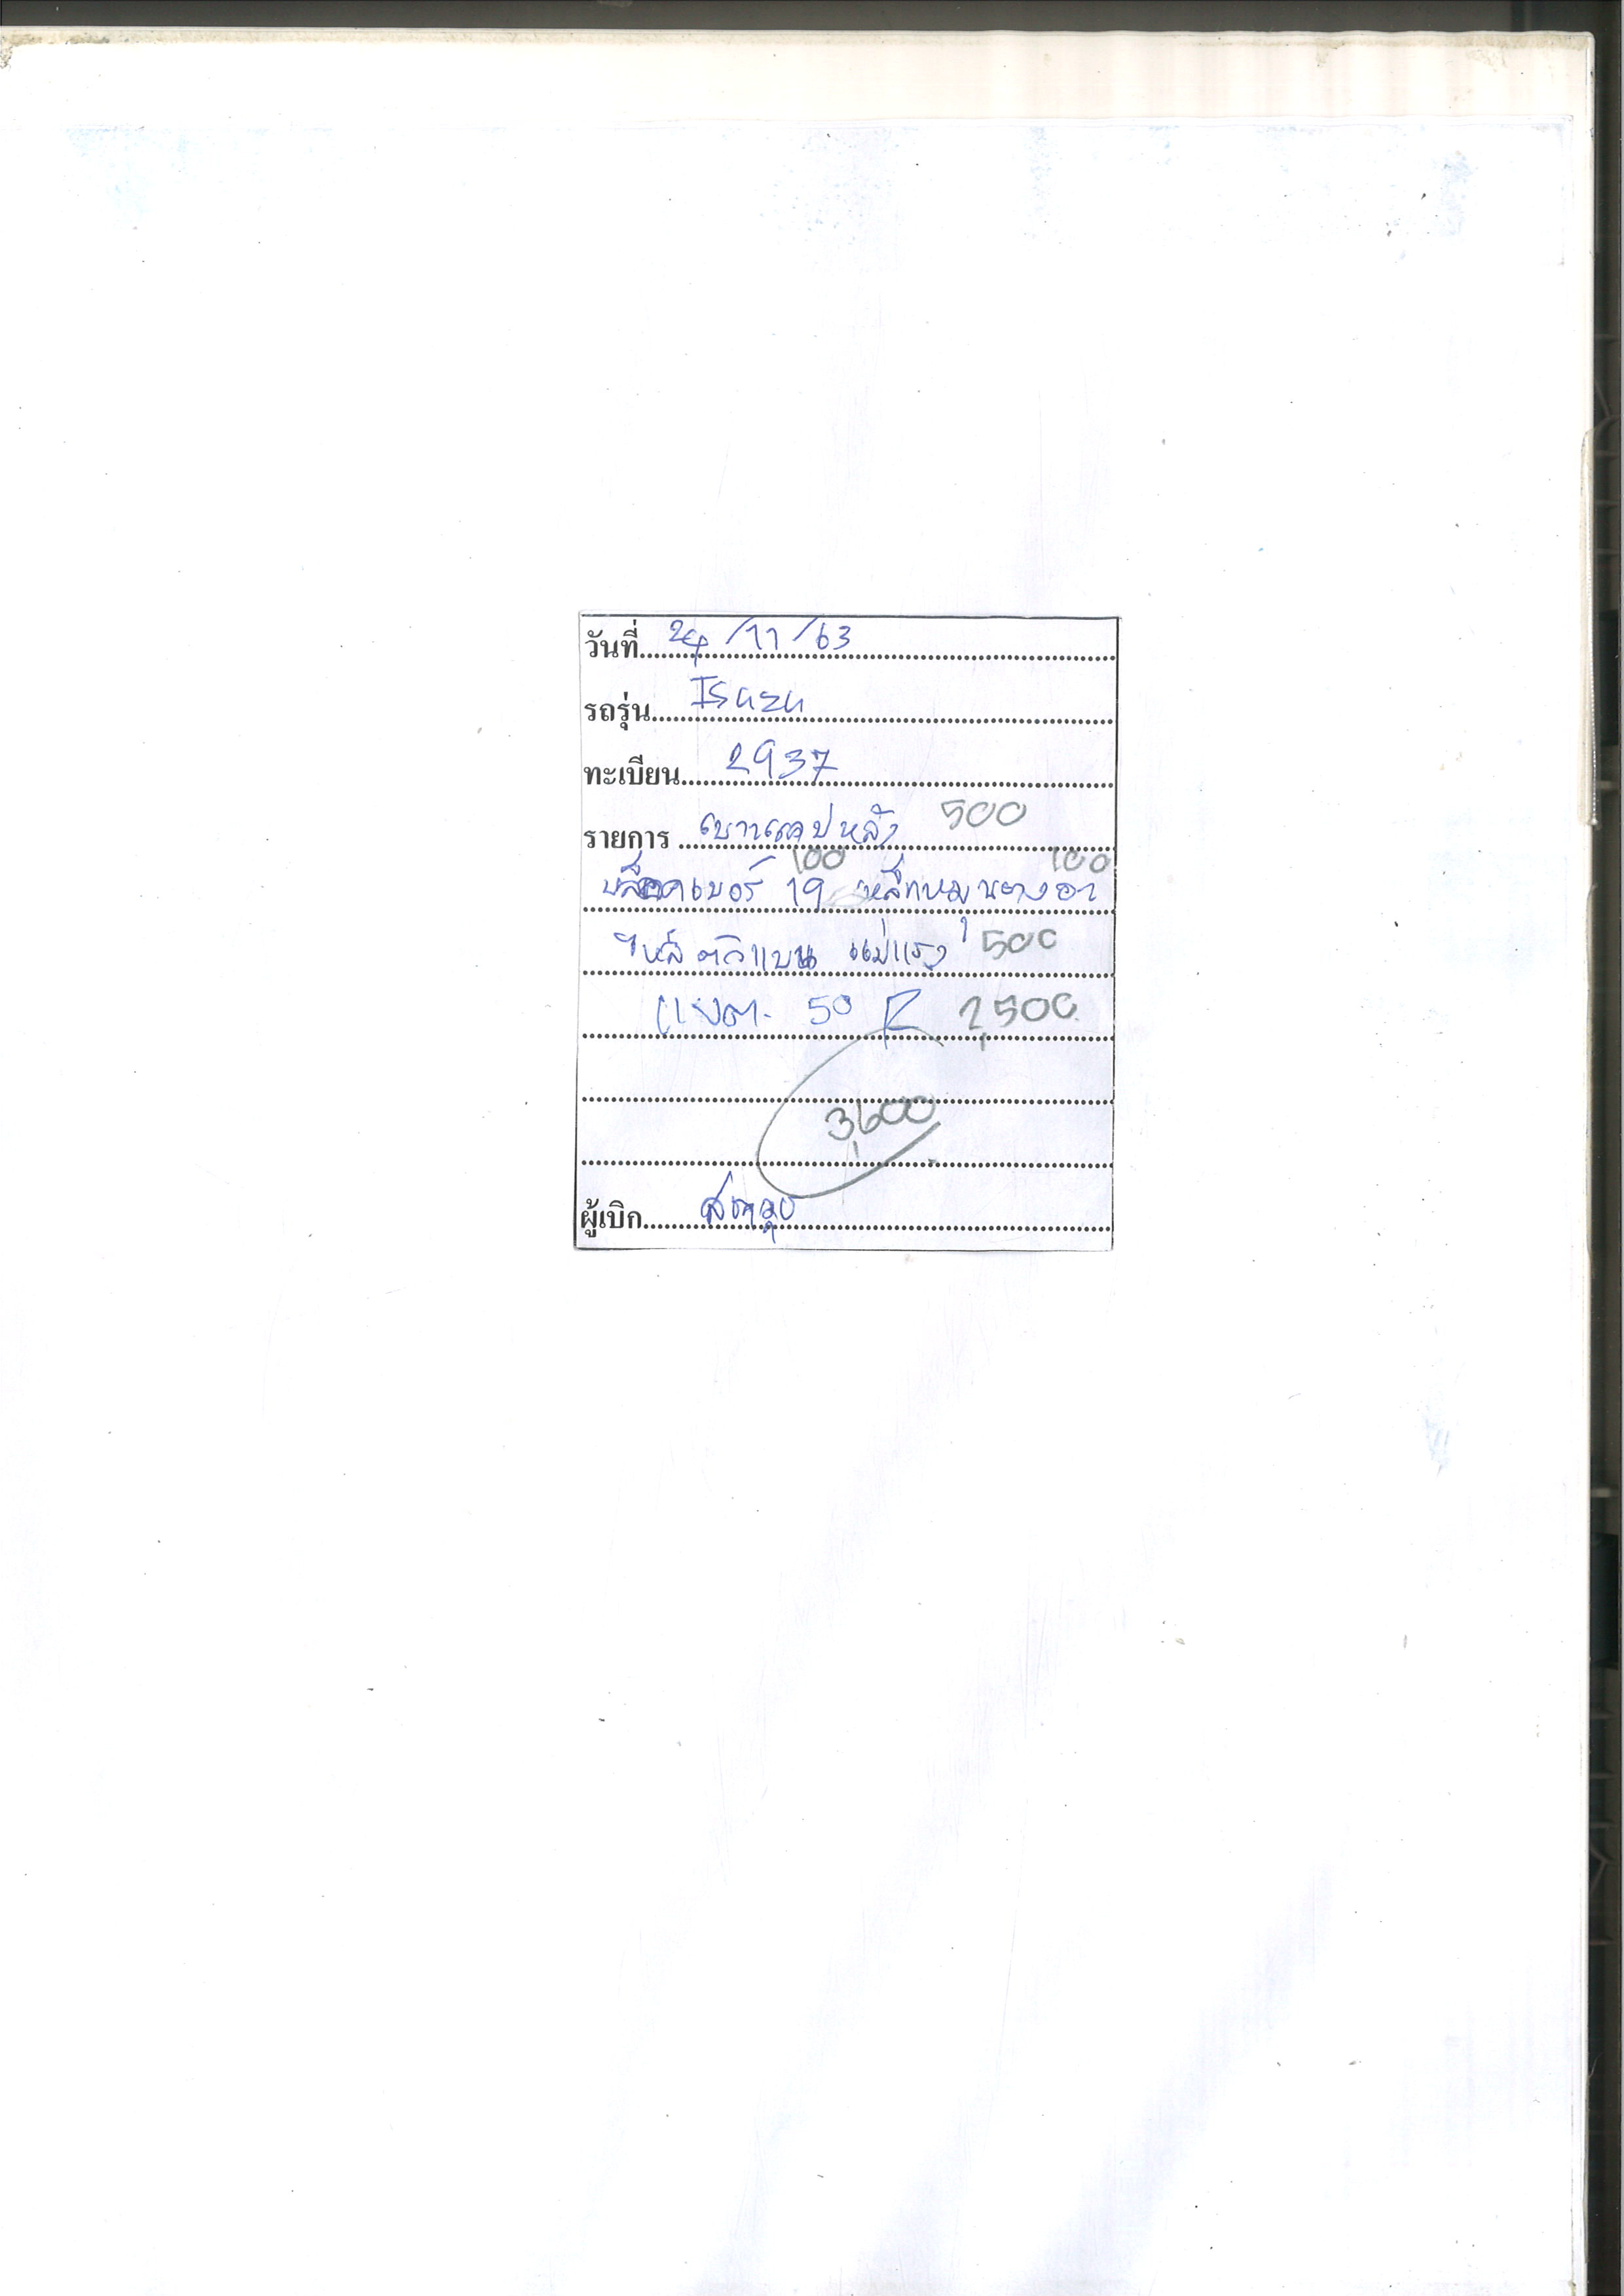 วันที่ 24/11/63
รถรุ่น Isuzu
ทะเบียน 2937
รายการ เบาะแคปหลัง 500
100 100
บล็อคเบอร์ 19 เหล็กหมุนยางอา
ไหล่ ตัวแบน แม่แรง 500
แบต. 50 R 2,500
3,600
ผู้เบิก